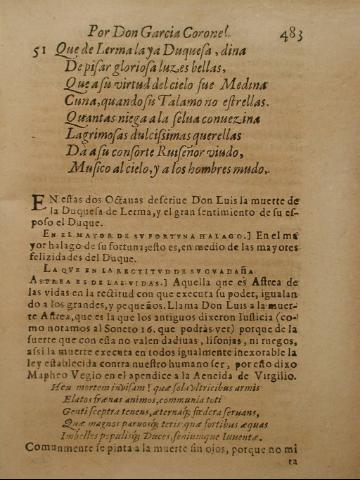 Por Don Garcia Coronel. 483
51 Que de Lerma la ya Duquesa, dina
De pisar gloriosa luzes bellas,
Que a su virtud del cielo fue Medina
Cuna, quando su Talamo no estrellas.
Quantas niega a la selua conuezina
Lagrimosas dulcissimas querellas
Da a su consorte Ruiseñor viudo,
Musico al cielo, y a los hombres mudo.
EN estas dos Octauas descriue Don Luis la muerte de
la Duquesa de Lerma, y el gran sentimiento de su es-
poso el Duque.
EN EL MAYOR DE SU FORTUNA HALAGO.] En el ma
yor halago de su fortuna; esto es, en medio de las mayores
felizidades del Duque.
LA QUE EN LA RECTITUD DE SU GUADAÑA
ASTREA ES DE LAS VIDAS.] Aquella que es Astrea de
las vidas en la rectitud con que executa su poder, igualan
do a los grandes, y pequeños. Llama Don Luis a la muer-
te Astrea, que es la que los antiguos dixeron Iusticia (co-
mo notamos al Soneto 16. que podras ver) porque de la
suerte que con esta no valen dadiuas, lisonjas, ni ruegos,
assi la muerte executa en todos igualmente inexorable la
ley establecida contra nuestro humano ser, por esto dixo
Mapheo Vegio en el apendice a la Aeneida de Virgilio.
Heu mortem inuisam! quæ sola vltricibus armis
Elatos frænas animos, communia toti
Genti sceptra tenens, æternaq; fœdera seruans,
Quæ magnos paruosq; teris: quæ fortibus æquas
Imbelles populisq; Duces, seniumque Iuuentæ.
Comunmente se pinta a la muerte sin ojos, porque no mi
ra